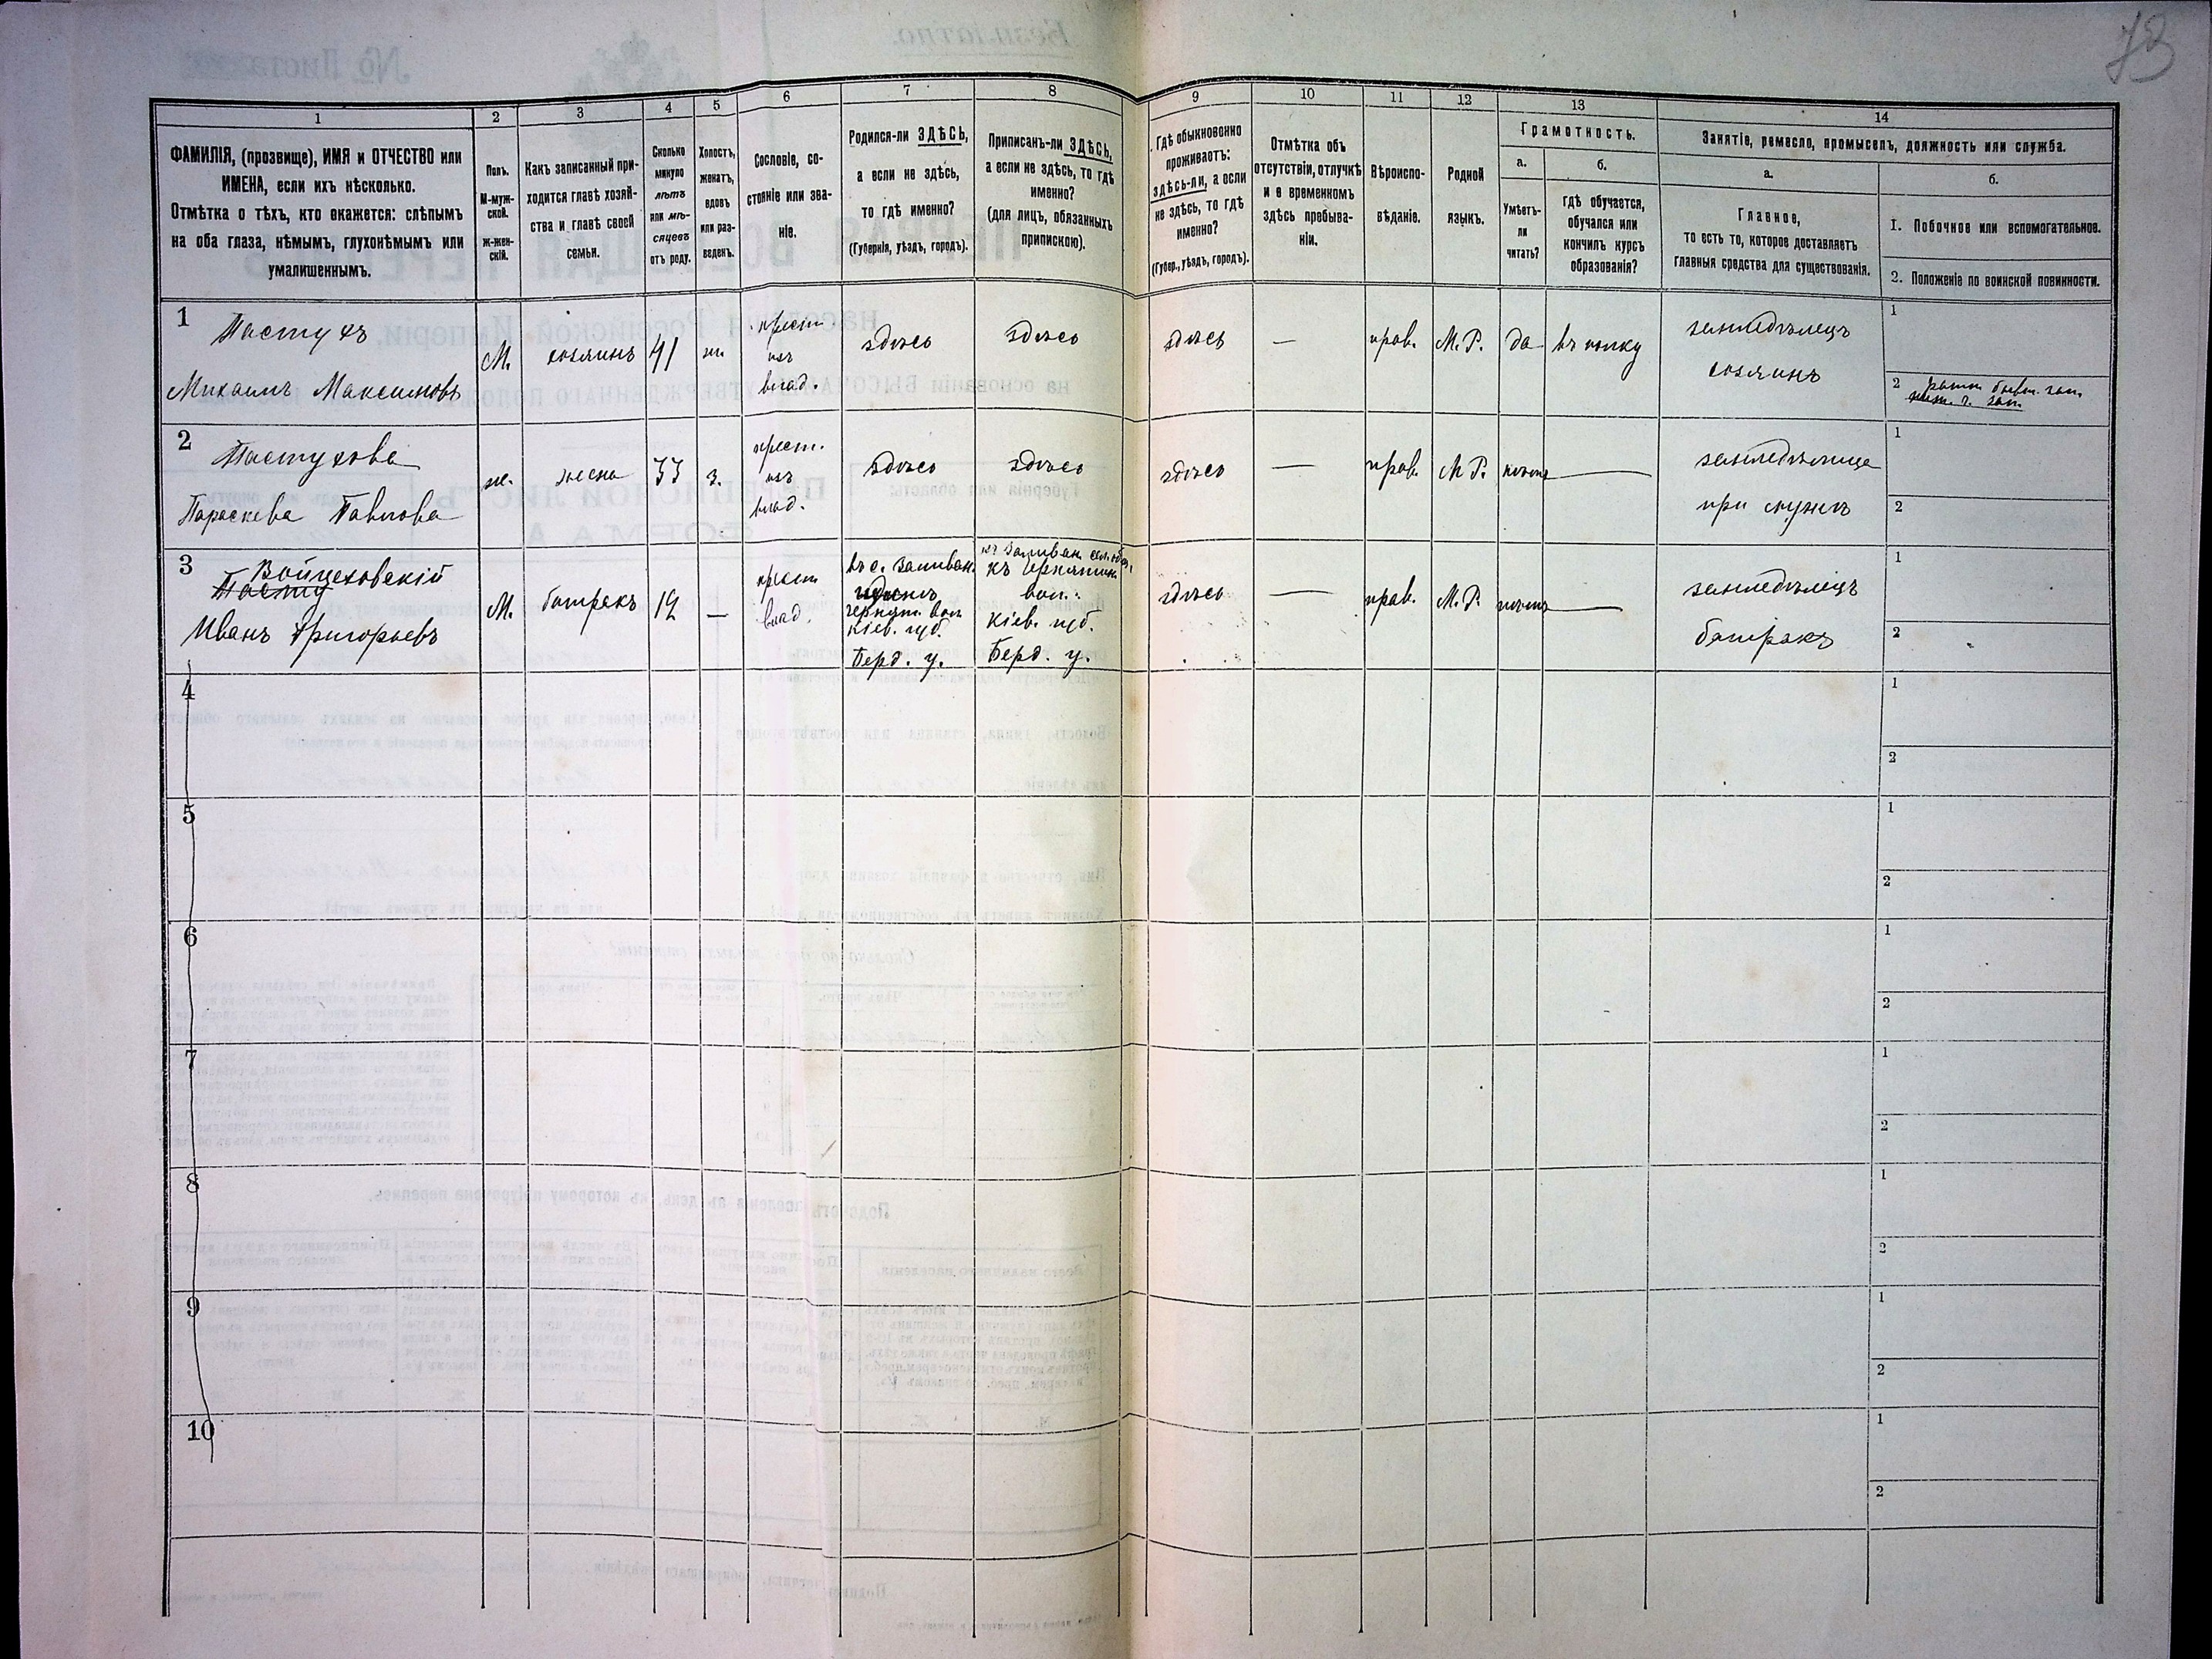 73
1
2
3
4
5
6
7
8
9
10
11
12
13
14
ФАМИЛІЯ, (прозвище), ИМЯ и ОТЧЕСТВО или
ИМЕНА, если ихъ нѣсколько.
Отмѣтка о тѣхъ, кто окажется: слѣпымъ
на оба глаза, нѣмымъ, глухонѣмымъ или
умалишеннымъ.
Полъ.
М-муж-
ской.
ж-жен-
скій.
Какъ записанный при-
ходится главѣ хозяй-
ства и главѣ своей
семьи.
Сколько
минуло
лѣтъ
или мѣ-
сяцевъ
отъ роду.
Холостъ,
женатъ,
вдовъ
или раз-
веденъ.
Сословіе, со-
стояніе или зва-
ніе.
Родился-ли ЗДѢСЬ,
а если не здѣсь,
то гдѣ именно?
(Губернія, уѣздъ, городъ).
Приписанъ-ли ЗДѢСЬ,
а если не здѣсь, то гдѣ
именно?
(для лицъ, обязанныхъ
припискою).
Гдѣ обыкновенно
проживаетъ:
здѣсь-ли, а если
не здѣсь, то гдѣ
именно?
(Губер., уѣздъ, городъ).
Отмѣтка объ
отсутствіи, отлучкѣ
и о временномъ
здѣсь пребыва-
ніи.
Вѣроиспо-
вѣданіе.
Родной
языкъ.
Грамотность.
а.
б.
Умѣетъ-
ли
читать?
гдѣ обучается,
обучался или
кончилъ курсъ
образованія?
Занятіе, ремесло, промыселъ, должность или служба.
а.
б.
Главное,
то есть то, которое доставляетъ
главныя средства для существованія.
1. Побочное или вспомогательное.
2. Положеніе по воинской повинности.
1
Пастухъ
Михаилъ Максимовъ
М.
хозяинъ
41
ж.
крест.
изъ
влад.
здѣсь
здѣсь
здѣсь
—
прав.
М. Р.
да
въ полку
земледѣлецъ
хозяинъ
1
2
2
Пастухова
Параскева Павлова
ж.
жена
33
з.
крест.
изъ
влад.
здѣсь
здѣсь
здѣсь
—
прав.
М. Р.
нѣтъ
—
земледѣлица
при мужѣ
1
2
3
Войцеховскій
Пасту
Иванъ Григорьевъ
М.
батракъ
12
—
крест.
влад.
вол.
кіев. губ.
Берд. у.
вол.
кіев. губ.
Берд. у.
здѣсь
—
прав.
М. Р.
нѣтъ
—
земледѣлецъ
батракъ
1
2
4
1
2
5
1
2
6
1
2
7
1
2
8
1
2
9
1
2
10
1
2